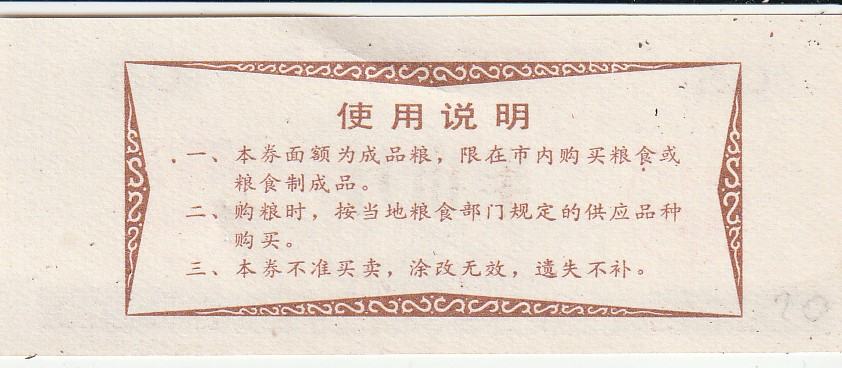 使用说明
一、本券面额为成品粮，限在市内购买粮食或
粮食制成品。
二、购粮时，按当地粮食部门规定的供应品种
购买。
三、本券不准买卖，涂改无效，遗失不补。
70